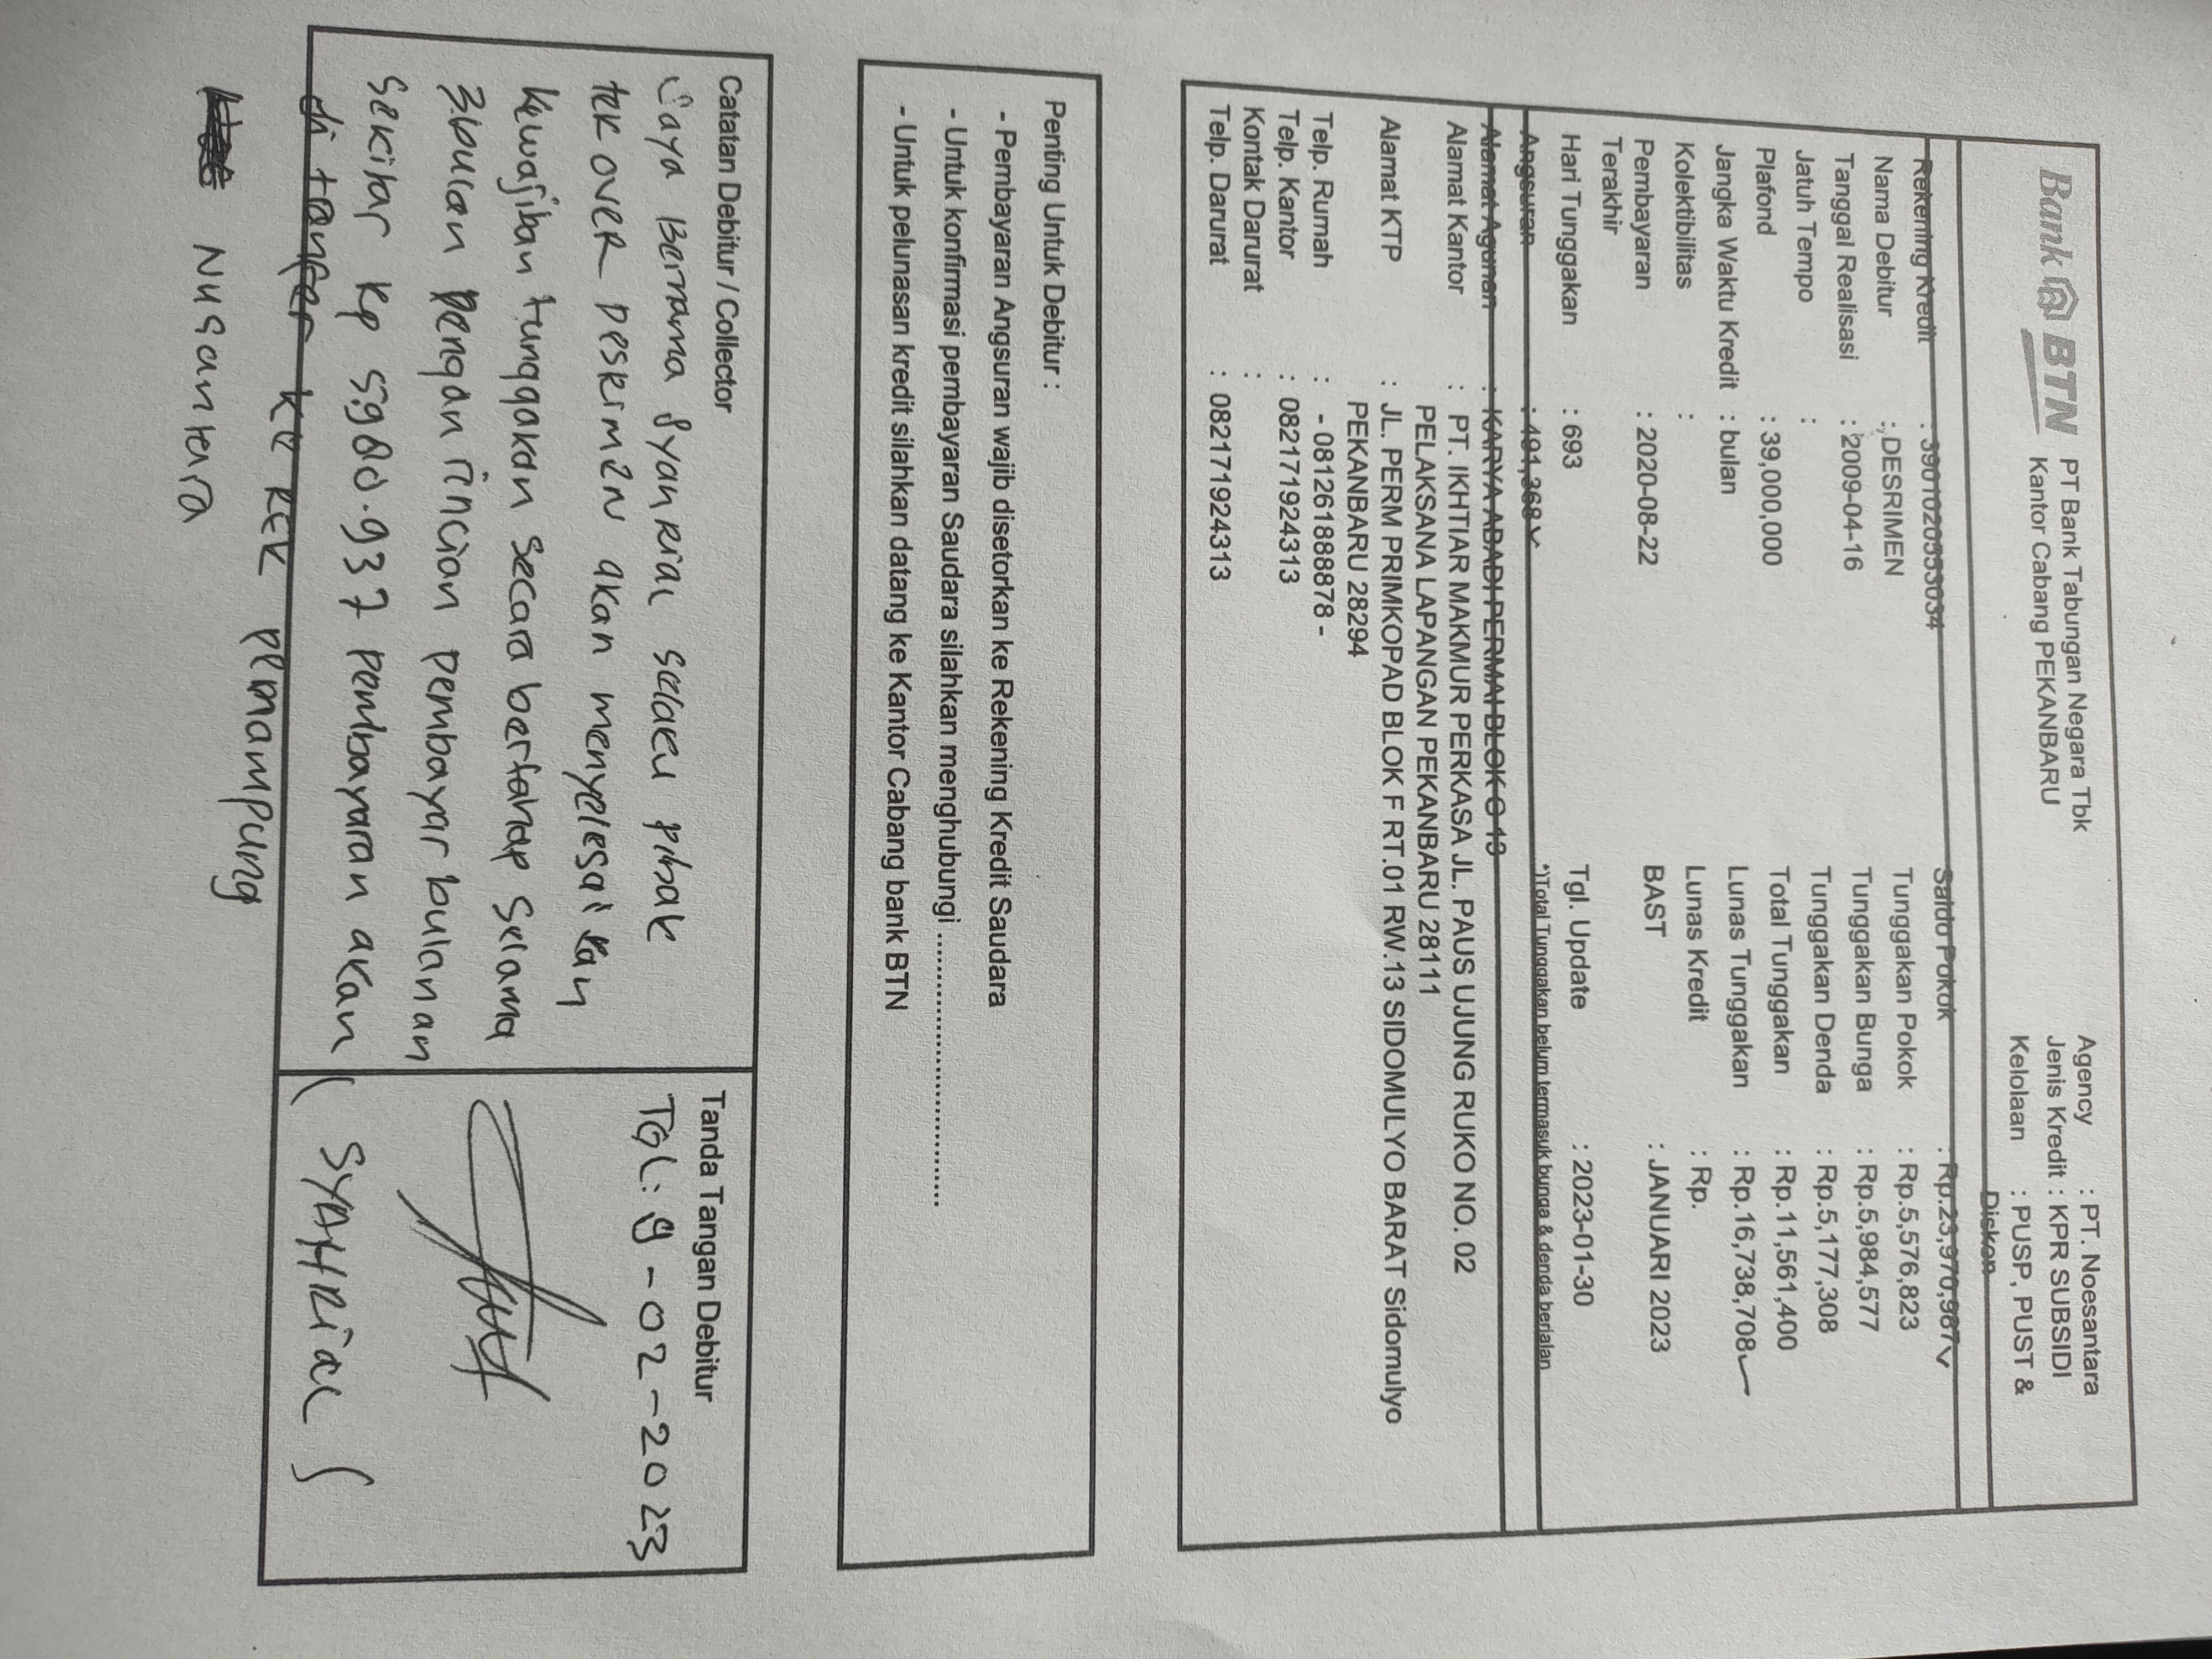 Bank BTN
PT Bank Tabungan Negara Tbk
Kantor Cabang PEKANBARU
Agency : PT. Noesantara
Jenis Kredit : KPR SUBSIDI
Kelolaan : PUSP, PUST &
Diskon
Rekening Kredit : 3901020553034
Nama Debitur : DESRIMEN
Tanggal Realisasi : 2009-04-16
Jatuh Tempo :
Plafond : 39,000,000
Jangka Waktu Kredit : bulan
Kolektibilitas :
Pembayaran Terakhir : 2020-08-22
Hari Tunggakan : 693
Angsuran : 491,368
Saldo Pokok : Rp.23,970,987
Tunggakan Pokok : Rp.5,576,823
Tunggakan Bunga : Rp.5,984,577
Tunggakan Denda : Rp.5,177,308
Total Tunggakan : Rp.11,561,400
Lunas Tunggakan : Rp.16,738,708
Lunas Kredit : Rp.
BAST : JANUARI 2023
Tgl. Update : 2023-01-30
*)Total Tunggakan belum termasuk bunga & denda berjalan
Alamat Agunan : KARYA ABADI PERMAI BLOK C 13
Alamat Kantor : PT. IKHTIAR MAKMUR PERKASA JL. PAUS UJUNG RUKO NO. 02
PELAKSANA LAPANGAN PEKANBARU 28111
Alamat KTP : JL. PERM PRIMKOPAD BLOK F RT.01 RW.13 SIDOMULYO BARAT Sidomulyo
PEKANBARU 28294
Telp. Rumah : - 081261888878 -
Telp. Kantor : 082171924313
Kontak Darurat :
Telp. Darurat : 082171924313
Penting Untuk Debitur :
- Pembayaran Angsuran wajib disetorkan ke Rekening Kredit Saudara
- Untuk konfirmasi pembayaran Saudara silahkan menghubungi ..............................
- Untuk pelunasan kredit silahkan datang ke Kantor Cabang bank BTN
Catatan Debitur / Collector
Saya Bernama Syahrial selaku pihak
tek over Desrimen akan menyelesaikan
kewajiban tunggakan secara bertahap selama
3.bulan Dengan rincian pembayar bulanan
sekitar Rp 5.980.937 pembayaran akan
di tanfer ke Rek penampung
Nusantara
Tanda Tangan Debitur
TGL: 9-02-2023
( SYAHRIAL )